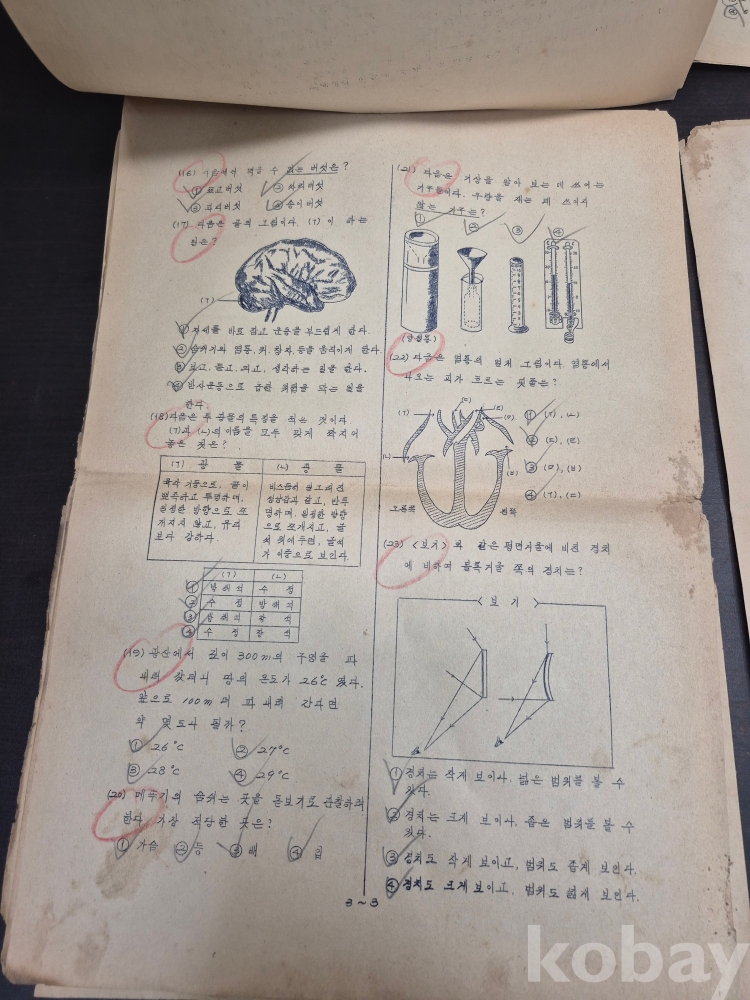 (16) 버섯은?
① 표고버섯 ② 싸리버섯
③ 파리버섯 ④ 송이버섯
(17) 다음은 골의 그림이다. (ㄱ)이 하는
일은?
(ㄱ)
① 자세를 바로 잡고 운동을 부드럽게 한다.
② 숨쉬기와 염통, 위, 창자, 등을 움직이게 한다.
③ 보고, 듣고, 외고, 생각하는 일을 한다.
④ 반사운동으로 급한 위험을 막는 일을
한다.
(18) 다음은 두 광물의 특징을 적은 것이다
(ㄱ)과 (ㄴ)의 이름을 모두 맞게 짝지어
놓은 것은?
(ㄱ) 광물 (ㄴ) 광물
육각 기둥으로, 끝이
뾰족하고 투명하며,
일정한 방향으로 쪼
개지지 않고, 유리
보다 강하다.
비스듬히 찌그러진
상자같은 꼴로, 반투
명하며, 일정한 방향
으로 쪼개지고, 글
씨 위에 두면, 글씨
가 이중으로 보인다.
(ㄱ) (ㄴ)
① 방해석 수정
② 수정 방해석
③ 방해석 장석
④ 수정 장석
(19) 광산에서 깊이 300m의 구멍을 파
내려 갔더니 땅의 온도가 26°C 였다.
앞으로 100m 더 파 내려 간다면
약 몇 도나 될까?
① 26°C ② 27°C
③ 28°C ④ 29°C
(20) 메뚜기의 숨쉬는 곳을 돋보기로 관찰하려
한다. 가장 적당한 곳은?
① 가슴 ② 등 ③ 배 ④ 입
(21) 다음은 기상을 알아 보는 데 쓰이는
기구들이다. 우량을 재는 데 쓰이지
않는 기구는?
① ② ③ ④
(양철통)
(22) 다음은 염통의 일체 그림이다. 염통에서
나오는 피가 흐르는 핏줄은?
(ㄱ) (ㄷ) (ㄹ) (ㅁ)
(ㄴ) (ㅂ)
오른쪽 왼쪽
① (ㄱ), (ㄴ)
② (ㄷ), (ㄹ)
③ (ㅁ), (ㅂ)
④ (ㄱ), (ㄷ)
(23) <보기> 와 같은 평면거울에 비친 경치
에 비하여 볼록거울 쪽의 경치는?
<보기>
① 경치는 작게 보이나, 넓은 범위를 볼 수
있다.
② 경치는 크게 보이나, 좁은 범위를 볼 수
있다.
③ 경치도 작게 보이고, 범위도 좁게 보인다.
④ 경치도 크게 보이고, 범위도 넓게 보인다.
3~3
kobay